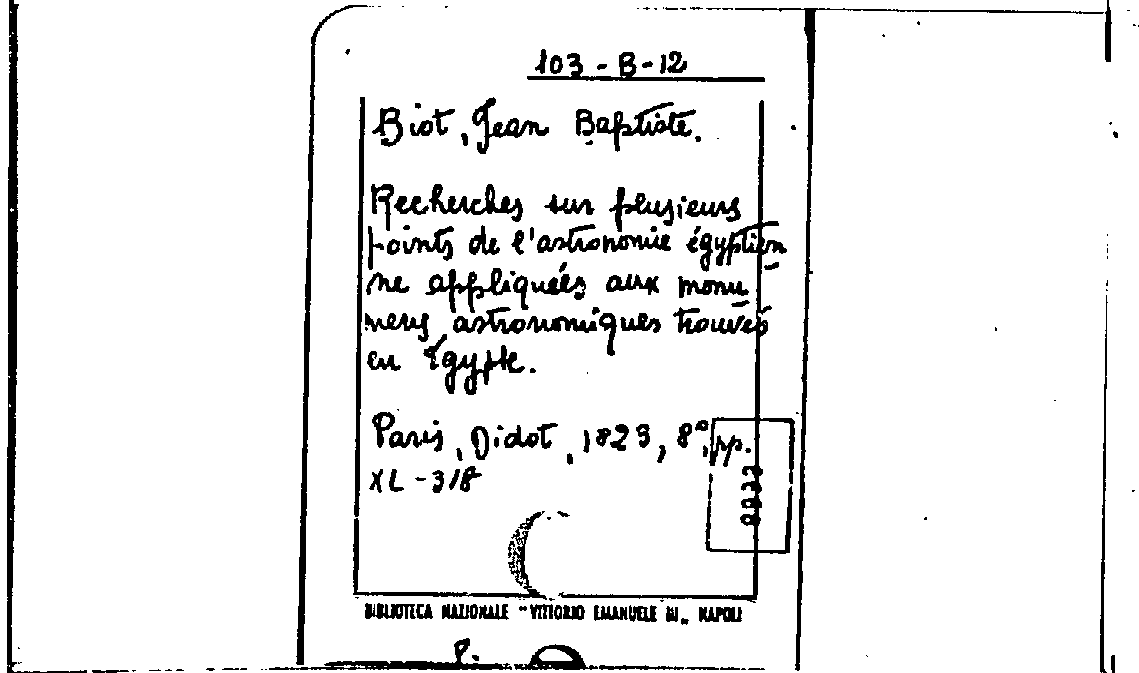 103 - B - 12
Biot, Jean Baptiste.
Recherches sur plusieurs
points de l'astronomie égyptien
ne appliquées aux monu
mens astronomiques trouvés
en Égypte.
Paris, Didot, 1823, 8°, pp.
XL - 318
BIBLIOTECA NAZIONALE "VITTORIO EMANUELE III„ NAPOLI